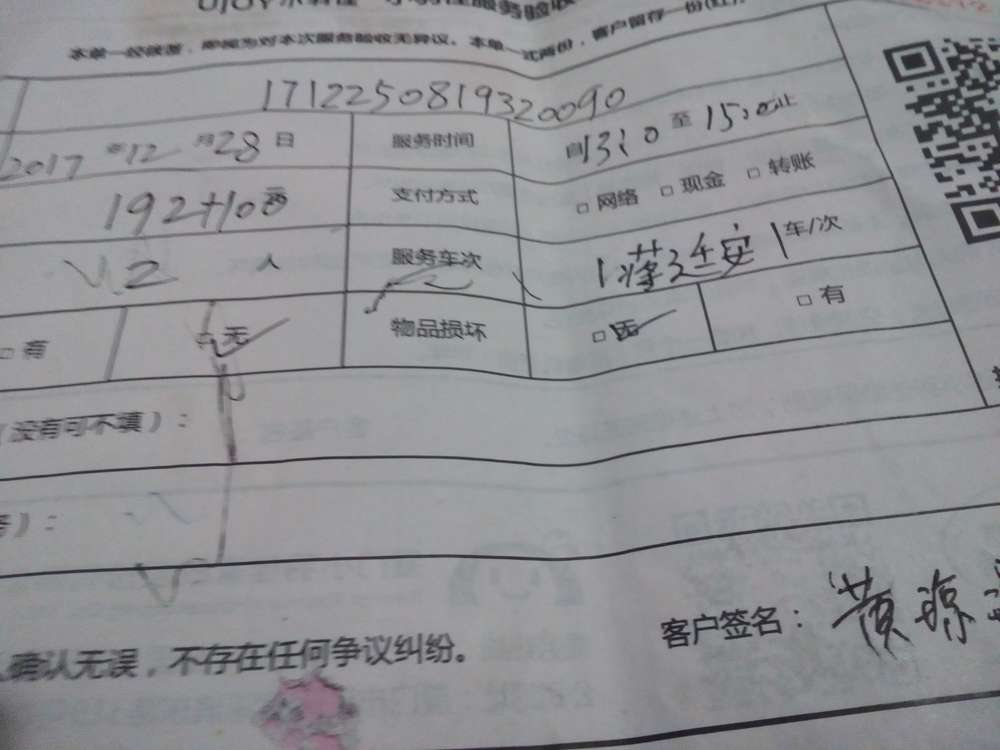 服务验收
本单一经被签，即视为对本次服务验收无异议。本单一式两份，客户留存一份(红),
1712250819320090
2017 年12 月28日 服务时间 自13:0 至 15:0止
192+10 支付方式 □ 网络 □ 现金 □ 转账
2 人 服务车次 1 1 车/次
□ 有 □ 无 物品损坏 □ 无 □ 有
(没有可不填)：
)：
客户签名： 黄琼
确认无误，不存在任何争议纠纷。